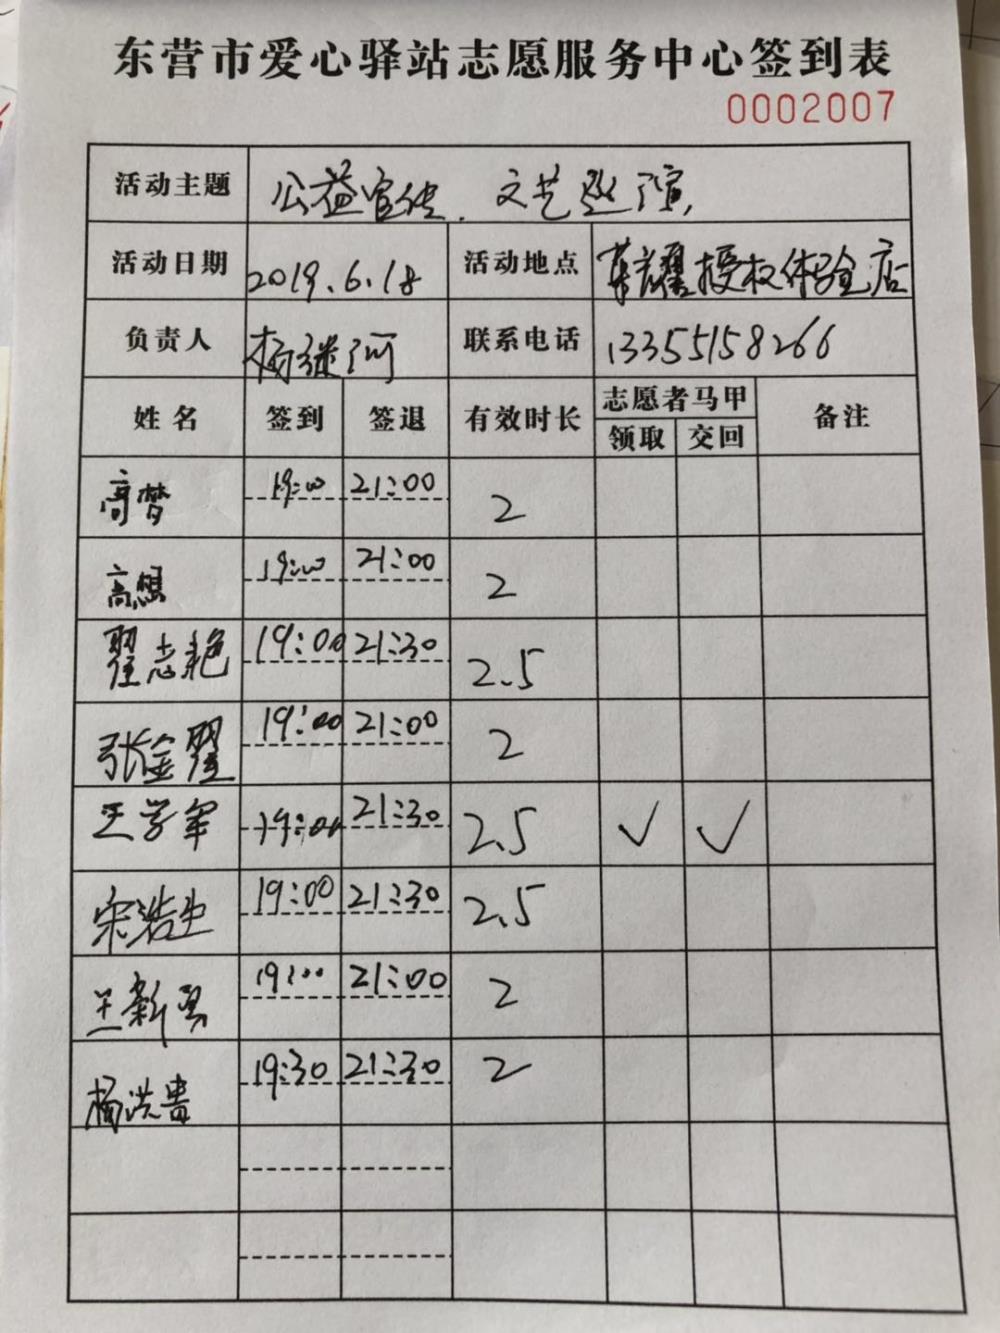 东营市爱心驿站志愿服务中心签到表
0002007
活动主题 公益宣传. 文艺巡演,
活动日期 2019.6.18 活动地点 荣耀授权体验店
负责人 杨继河 联系电话 13355158266
姓名 签到 签退 有效时长 志愿者马甲 备注
领取 交回
高梦 19:00 21:00 2
高想 19:00 21:00 2
翟志艳 19:00 21:30 2.5
张金翠 19:00 21:00 2
王学军 19:00 21:30 2.5 ✓ ✓
宋浩 19:00 21:30 2.5
王新 19:00 21:00 2
杨洪贵 19:30 21:30 2